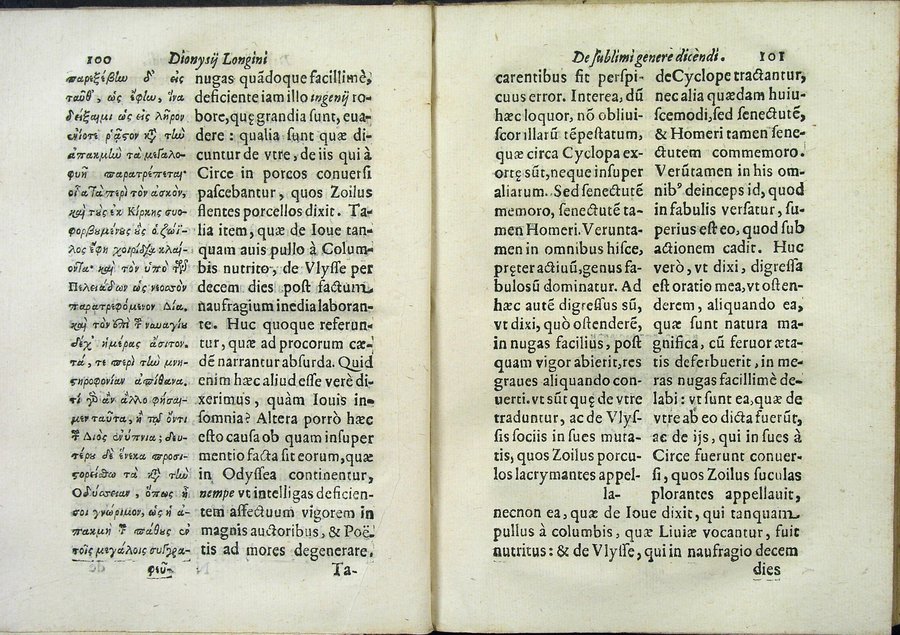 100 Dionysij Longini
παρεξέβην δ' εἰς
ταῦθ', ὡς ἔφην, ἵνα
δείξαιμι ὡς εἰς λῆρον
ἐνίοτε ῥᾷστον κατὰ τὴν
ἀπακμὴν τὰ μεγαλο-
φυῆ παρατρέπεται·
οἷα τὰ περὶ τὸν ἀσκὸν,
καὶ τοὺς ἐκ Κίρκης συο-
φορβουμένους οὓς ὁ ζωΐ-
λος ἔφη χοιρίδια κλαί-
οντα· καὶ τὸν ὑπὸ τῶν
Πελειάδων ὡς νεοσσὸν
παρατρεφόμενον Δία.
καὶ τὸν ἐπὶ τοῦ ναυαγίου
δέχ' ἡμέρας ἄσιτον.
τά, τε περὶ τὴν μνη-
στηροφονίαν ἀπίθανα.
τί γὸ ἂν ἄλλο φήσαι-
μεν ταῦτα, ἢ τῷ ὄντι
τοῦ Διὸς ἐνύπνια; δευ-
τέρου δὲ ἕνεκα προσι-
στορείσθω τὰ κατὰ τὴν
Ὀδύσσειαν, ὅπως ᾖ
σοι γνώριμον, ὡς ἡ ἀ-
πακμὴ τοῦ πάθους ἐν
τοῖς μεγάλοις συγγρα-
φεῦ-
nugas quãdoque facillimè,
deficiente iam illo ingenij ro-
bore, quę grandia sunt, eua-
dere: qualia sunt quæ di-
cuntur de vtre, de iis qui à
Circe in porcos conuersi
pascebantur, quos Zoilus
flentes porcellos dixit. Ta-
lia item, quæ de Ioue tan-
quam auis pullo à Colum-
bis nutrito, de Vlysse per
decem dies post factum
naufragium inedia laboran-
te. Huc quoque referun-
tur, quæ ad procorum cæ-
dē narrantur absurda. Quid
enim hæc aliud esse verè di-
xerimus, quàm Iouis in-
somnia? Altera porrò hæc
esto causa ob quam insuper
mentio facta sit eorum, quæ
in Odyssea continentur,
nempe vt intelligas deficien-
tem affectuum vigorem in
magnis auctoribus, & Poë-
tis ad mores degenerare.
Ta-
De sublimi genere dicendi. 101
carentibus sit perspi-
cuus error. Interea, dũ
hæc loquor, nõ obliui-
scor illarũ tēpestatum,
quæ circa Cyclopa ex-
ortę sũt, neque insuper
aliarum. Sed senectutē
memoro, senectutē ta-
men Homeri. Verunta-
men in omnibus hisce,
pręter actiuũ, genus fa-
bulosũ dominatur. Ad
hæc autē digressus sũ,
vt dixi, quò ostenderē,
in nugas facilius, post
quam vigor abierit, res
graues aliquando con-
uerti. vt sũt quę de vtre
traduntur, ac de Vlys-
sis sociis in sues muta-
tis, quos Zoilus porcu-
los lacrymantes appel-
la-
de Cyclope tractantur,
nec alia quædam huiu-
scemodi, sed senectutē,
& Homeri tamen sene-
ctutem commemoro.
Verũtamen in his om-
nib⁹ deinceps id, quod
in fabulis versatur, su-
perius est eo, quod sub
actionem cadit. Huc
verò, vt dixi, digressa
est oratio mea, vt osten-
derem, aliquando ea,
quæ sunt natura ma-
gnifica, cũ feruor æta-
tis deferbuerit, in me-
ras nugas facillimè de-
labi: vt sunt ea, quæ de
vtre ab eo dicta fuerũt,
ac de ijs, qui in sues à
Circe fuerunt conuer-
si, quos Zoilus suculas
plorantes appellauit,
necnon ea, quæ de Ioue dixit, qui tanquam
pullus à columbis, quæ Liuiæ vocantur, fuit
nutritus: & de Vlysse, qui in naufragio decem
dies